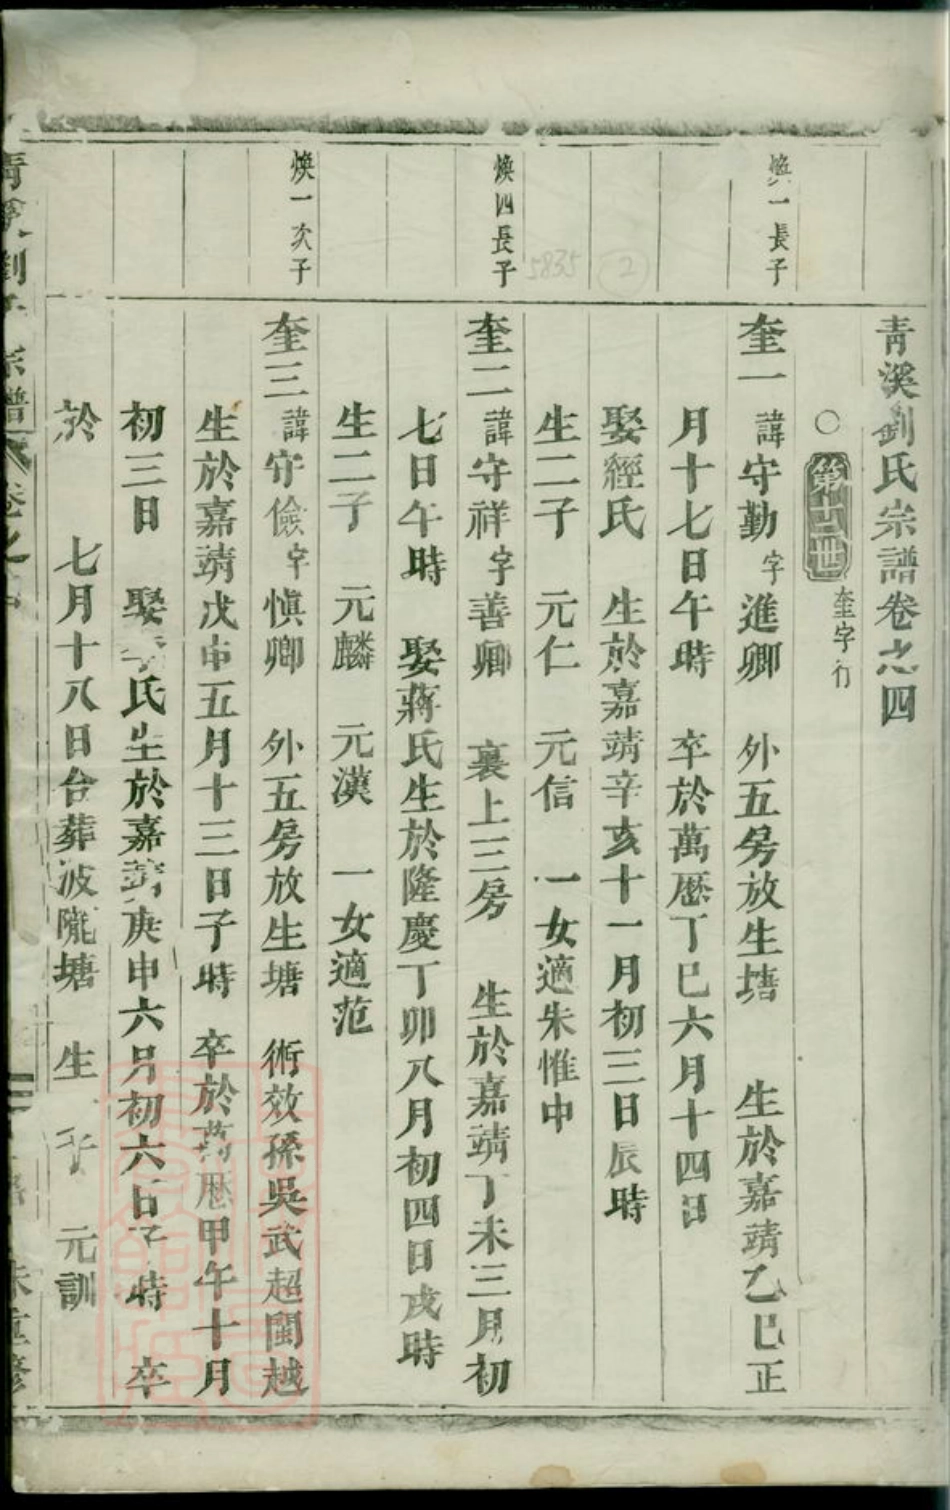 青溪劉氏宗譜卷之四
○第十二世 奎字行
煥一長子
奎一 諱守勤 字進卿 外五房放生塘 生於嘉靖乙巳正
月十七日午時 卒於萬歷丁巳六月十四日
娶經氏 生於嘉靖辛亥十一月初三日辰時
生二子 元仁 元信 一女適朱惟中
煥四長子
奎二 諱守祥 字善卿 裏上三房 生於嘉靖丁未三月初
七日午時 娶蔣氏生於隆慶丁卯八月初四日戌時
生二子 元麟 元漢 一女適范
煥一次子
奎三 諱守儉 字愼卿 外五房放生塘 術效孫吳武超閩越
生於嘉靖戊申五月十三日子時 卒於萬歷甲午十月
初三日 娶 氏生於嘉靖庚申六月初六日子時 卒
於 七月十八日合葬波隴塘 生 子 元訓
5835
2
宗譜 卷之
重修